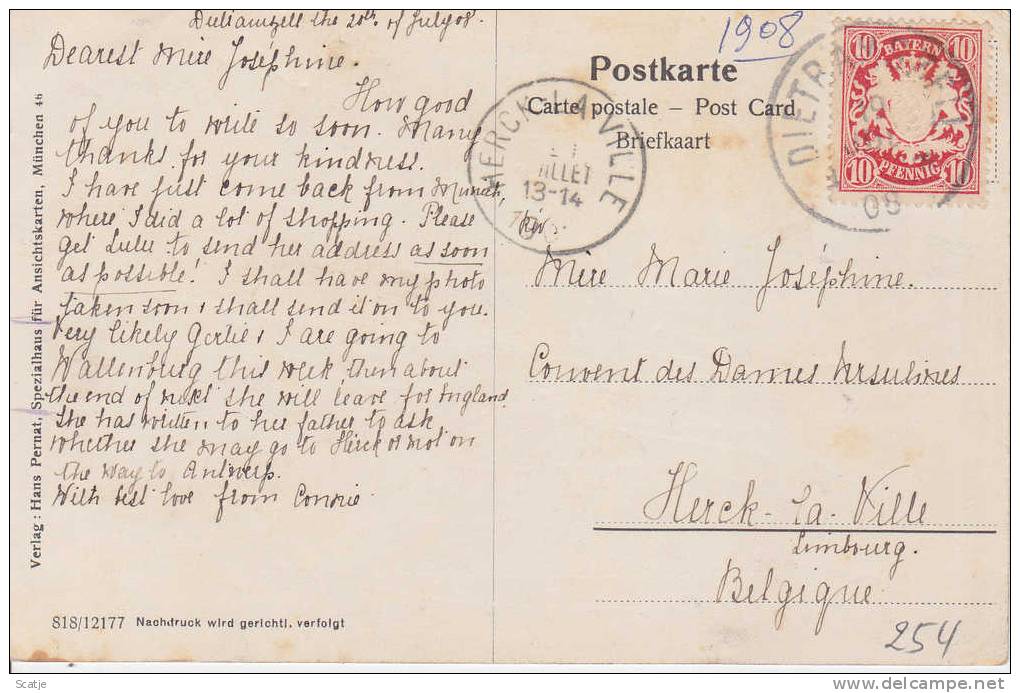 the 20th of July 08.
Dearest Mère Joséphine.
How good
of you to write so soon. Many
thanks for your kindness.
I have just come back from Munich,
where I did a lot of shopping. Please
get Lulu to send her address as soon
as possible! I shall have my photo
taken soon & shall send it on to you.
Very likely Gertie & I are going to
Wallenburg this week then about
the end of next she will leave for England.
She has written to her father to ask
whether she may go to Herck or not on
the way to Antwerp.
With best love from Connie
Verlag: Hans Pernat, Spezialhaus für Ansichtskarten, München 46
818/12177 Nachdruck wird gerichtl. verfolgt
1908
Postkarte
Carte postale – Post Card
Briefkaart
HERCK-LA-VILLE
ILLET
13-14
DIETRA
08
10 BAYERN 10
10 PFENNIG 10
Mère Marie Joséphine.
Convent des Dames Ursulines
Herck-la-Ville
Limbourg.
Belgique
254
Scatje
delcampe.net